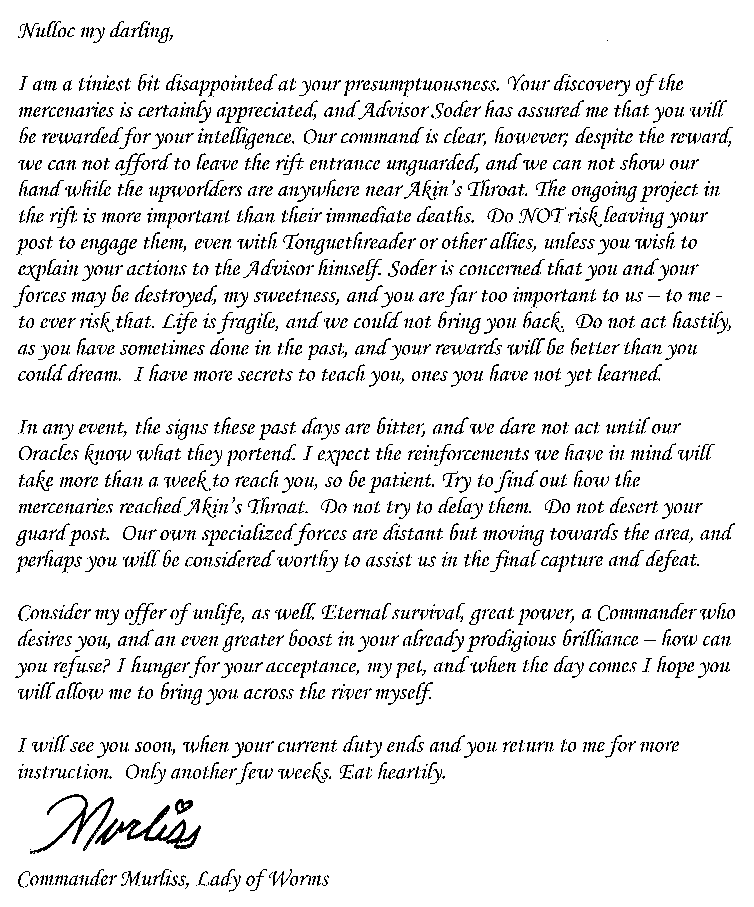 Nulloc my darling,
I am a tiniest bit disappointed at your presumptuousness. Your discovery of the
mercenaries is certainly appreciated, and Advisor Soder has assured me that you will
be rewarded for your intelligence. Our command is clear, however; despite the reward,
we can not afford to leave the rift entrance unguarded, and we can not show our
hand while the upworlders are anywhere near Akin's Throat. The ongoing project in
the rift is more important than their immediate deaths.  Do NOT risk leaving your
post to engage them, even with Tonguethreader or other allies, unless you wish to
explain your actions to the Advisor himself. Soder is concerned that you and your
forces may be destroyed, my sweetness, and you are far too important to us – to me -
to ever risk that. Life is fragile, and we could not bring you back.  Do not act hastily,
as you have sometimes done in the past, and your rewards will be better than you
could dream.  I have more secrets to teach you, ones you have not yet learned.
In any event, the signs these past days are bitter, and we dare not act until our
Oracles know what they portend. I expect the reinforcements we have in mind will
take more than a week to reach you, so be patient. Try to find out how the
mercenaries reached Akin's Throat.  Do not try to delay them.  Do not desert your
guard post.  Our own specialized forces are distant but moving towards the area, and
perhaps you will be considered worthy to assist us in the final capture and defeat.
Consider my offer of unlife, as well. Eternal survival, great power, a Commander who
desires you, and an even greater boost in your already prodigious brilliance – how can
you refuse? I hunger for your acceptance, my pet, and when the day comes I hope you
will allow me to bring you across the river myself.
I will see you soon, when your current duty ends and you return to me for more
instruction.  Only another few weeks. Eat heartily.
Murliss
Commander Murliss, Lady of Worms